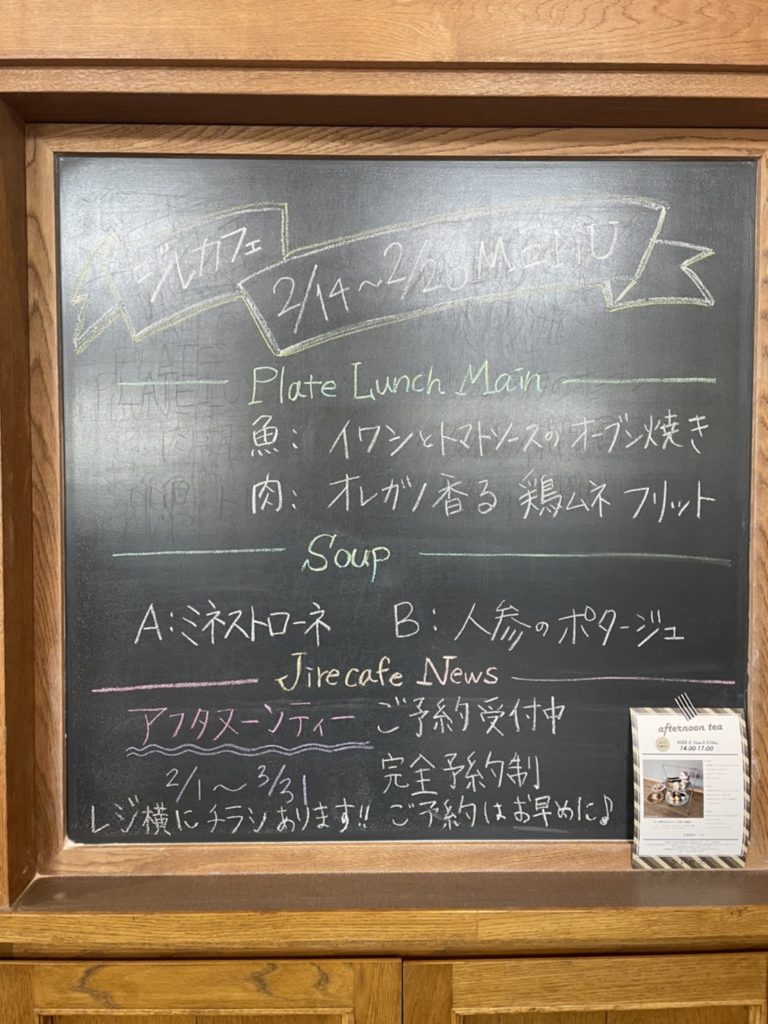 ジルカフェ 2/14～2/20 MENU
Plate Lunch Main
魚: イワシとトマトソースのオーブン焼き
肉: オレガノ香る 鶏ムネ フリット
Soup
A:ミネストローネ B: 人参のポタージュ
Jirecafe News
アフタヌーンティー ご予約受付中
2/1～3/31 完全予約制
レジ横にチラシあります!! ご予約はお早めに♪
afternoon tea
14:00-17:00